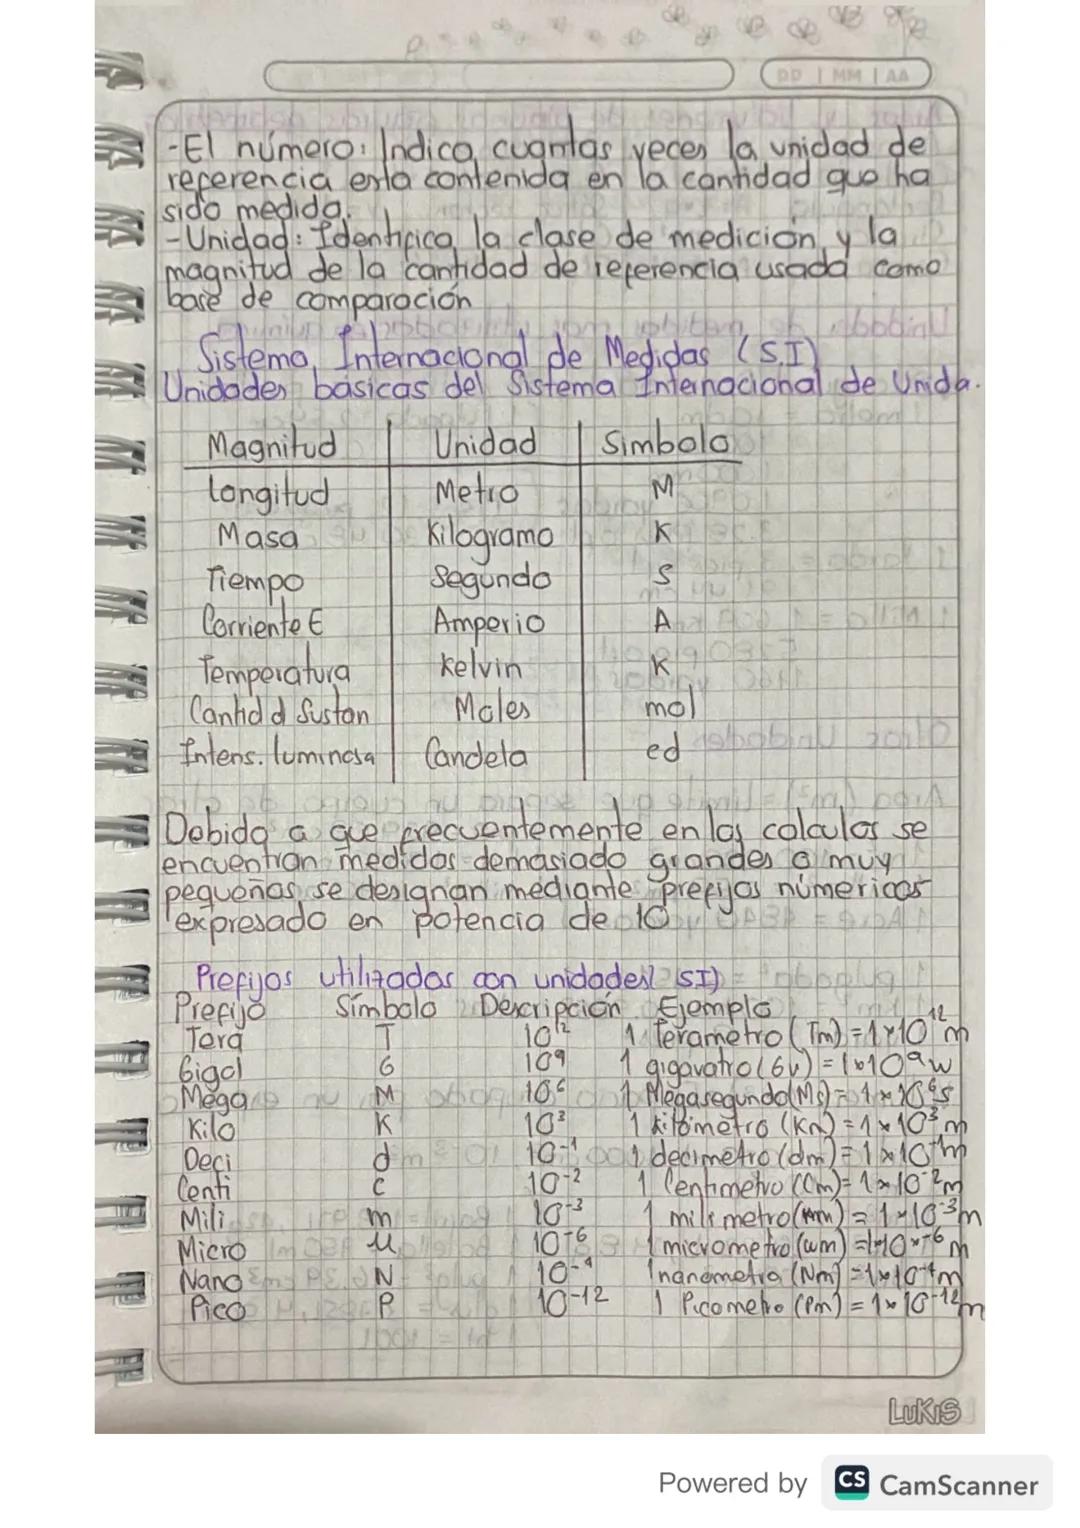 DD | MM | AA
-El número: Indica cuantas veces la unidad de
referencia esta contenida en la cantidad que ha
sido medida.
-Unidad: Identifica la clase de medición y la
magnitud de la cantidad de referencia usada como
base de comparación
Sistema Internacional de Medidas (S.I)
Unidades básicas del Sistema Internacional de Unida.
Magnitud Unidad Simbolo
Longitud Metro M
Masa Kilogramo K
Tiempo Segundo S
Corriente E Amperio A
Temperatura Kelvin K
Cantid d Sustan Moles mol
Intens. luminosa Candela ed
Debido a que frecuentemente en los calculos se
encuentran medidas demasiado grandes o muy
pequeñas se designan mediante prefijos númericos
expresado en potencia de 10
Prefijos utilizados con unidades( SI)
Prefijo Símbolo Descripción Ejemplo
Tera T 10¹² 1 Terametro (Tm) = 1x10¹² m
Giga G 10⁹ 1 gigavatro (Gv) = 1x10⁹ w
Mega M 10⁶ 1 Megasegundo (Ms) = 1x10⁶ s
Kilo K 10³ 1 kilometro (Km) = 1x10³ m
Deci d 10⁻¹ 1 decimetro (dm) = 1x10⁻¹ m
Centi c 10⁻² 1 Centimetro (Cm) = 1x10⁻² m
Mili m 10⁻³ 1 milimetro (mm) = 1x10⁻³ m
Micro µ 10⁻⁶ 1 micrometro (um) = 1x10⁻⁶ m
Nano N 1 nanometro (Nm)
Pico P 10⁻¹² 1 Picometro (Pm) = 1x10⁻¹² m
LUKIS
Powered by CS CamScanner